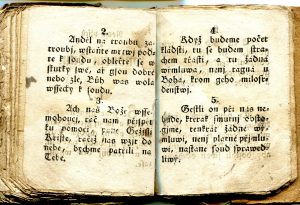 2.
Anděl na troubu za=
troubj, wstaňte mrtwj pod=
te k soudu, oblečte se w
skutky swé, at gsou dobré
nebo zlé, Bůh was wola
wssecky k soudu.
3.
Ach náš Bože wsse=
mohoucj, rač nám přispět
ku pomoci, pane Gežissi
Kriste, račiž nás wzjt do
nebe, bychme patřili na
Tebe.
4.
Když budeme počet
klásti, tu se budem stra=
chem třásti, a tu žádná
wýmluwa, nenj u
Boha, krom geho milosr=
denstwj.
5.
Gestli on při nás ne=
bude, kterak smutnj obsto=
gjme, tenkrát žádné wý=
mluwj, nenj platné přjmlu=
wj, nastane soud sprawed=
liwý.